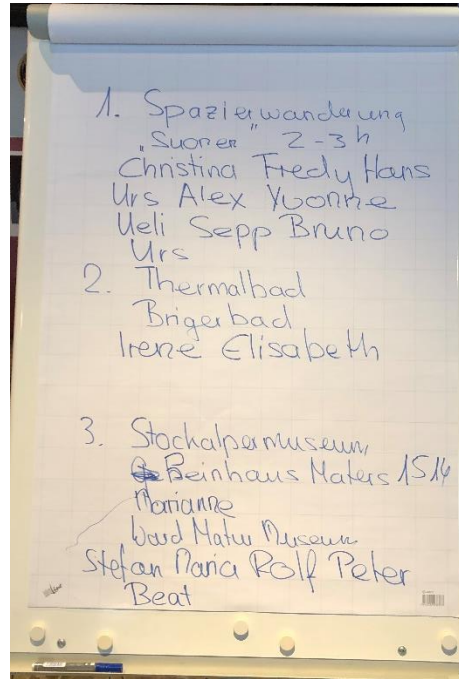 1. Spazierwanderung
"Suonen" 2-3h
Christina Fredy Hans
Urs Alex Yvonne
Ueli Sepp Bruno
Urs
2. Thermalbad
Brigerbad
Irene Elisabeth
3. Stockalpermuseum
Beinhaus Naters 1514
Marianne
Natur Museum
Stefan Maria Rolf Peter
Beat